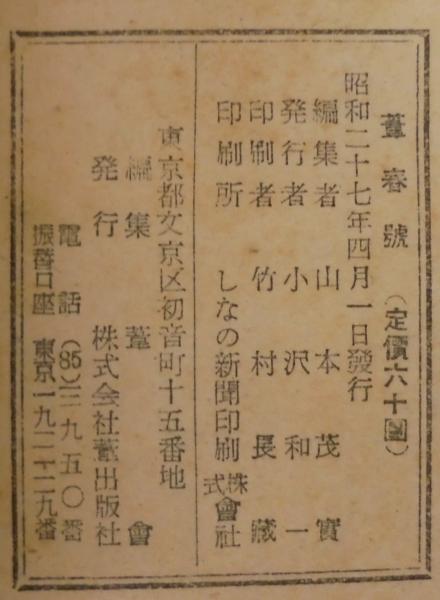 葦春號(定價六十圓)
昭和二十七年四月一日發行
編集者 山本茂實
発行者 小沢和一
印刷者 竹村長藏
印刷所 しなの新聞印刷株式會社
東京都文京区初音町十五番地
編集 葦會
発行 株式会社葦出版社
電話(85)三九五〇番
振替口座 東京一九二・二九番